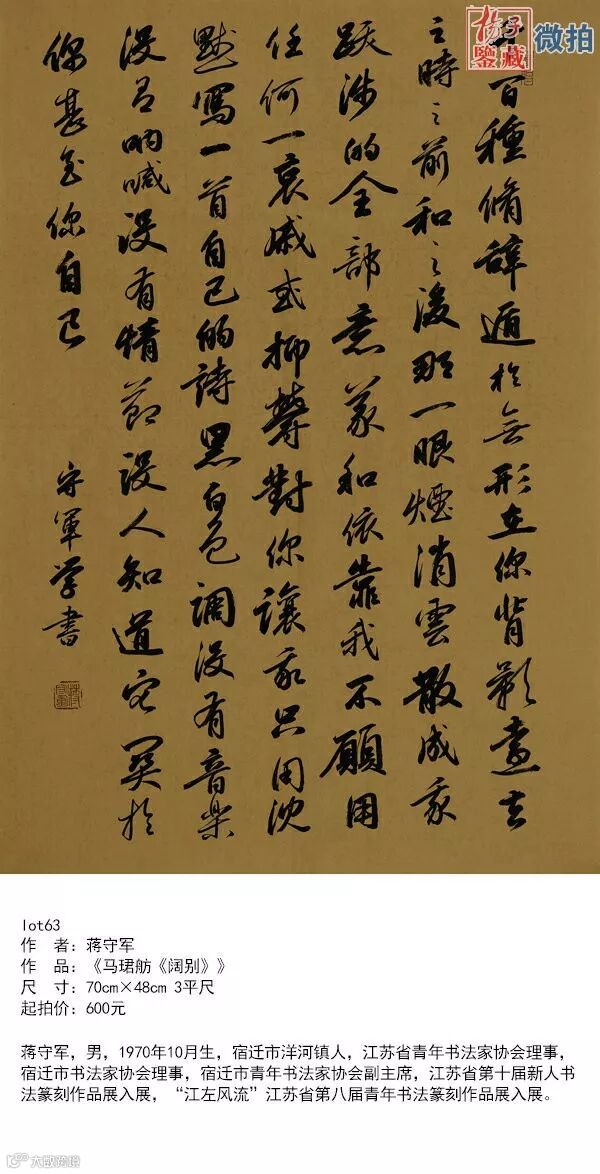 杨子
鑒藏
微拍
百種脩辭遁於無形在你背影遠去
之時之前和之後那一眼煙消雲散成我
跋涉的全部意義和依靠我不願用
任何一哀戚或抑鬱對你讓我只用沈
默寫一首自己的詩黑白色調沒有音樂
沒有吶喊沒有情節沒人知道它關於
你甚至你自己
守軍學書
lot63
作 者：蒋守军
作 品：《马珺舫《阔别》》
尺 寸：70cm×48cm 3平尺
起拍价：600元
蒋守军，男，1970年10月生，宿迁市洋河镇人，江苏省青年书法家协会理事，
宿迁市书法家协会理事，宿迁市青年书法家协会副主席，江苏省第十届新人书
法篆刻作品展入展，“江左风流”江苏省第八届青年书法篆刻作品展入展。
大数跨境